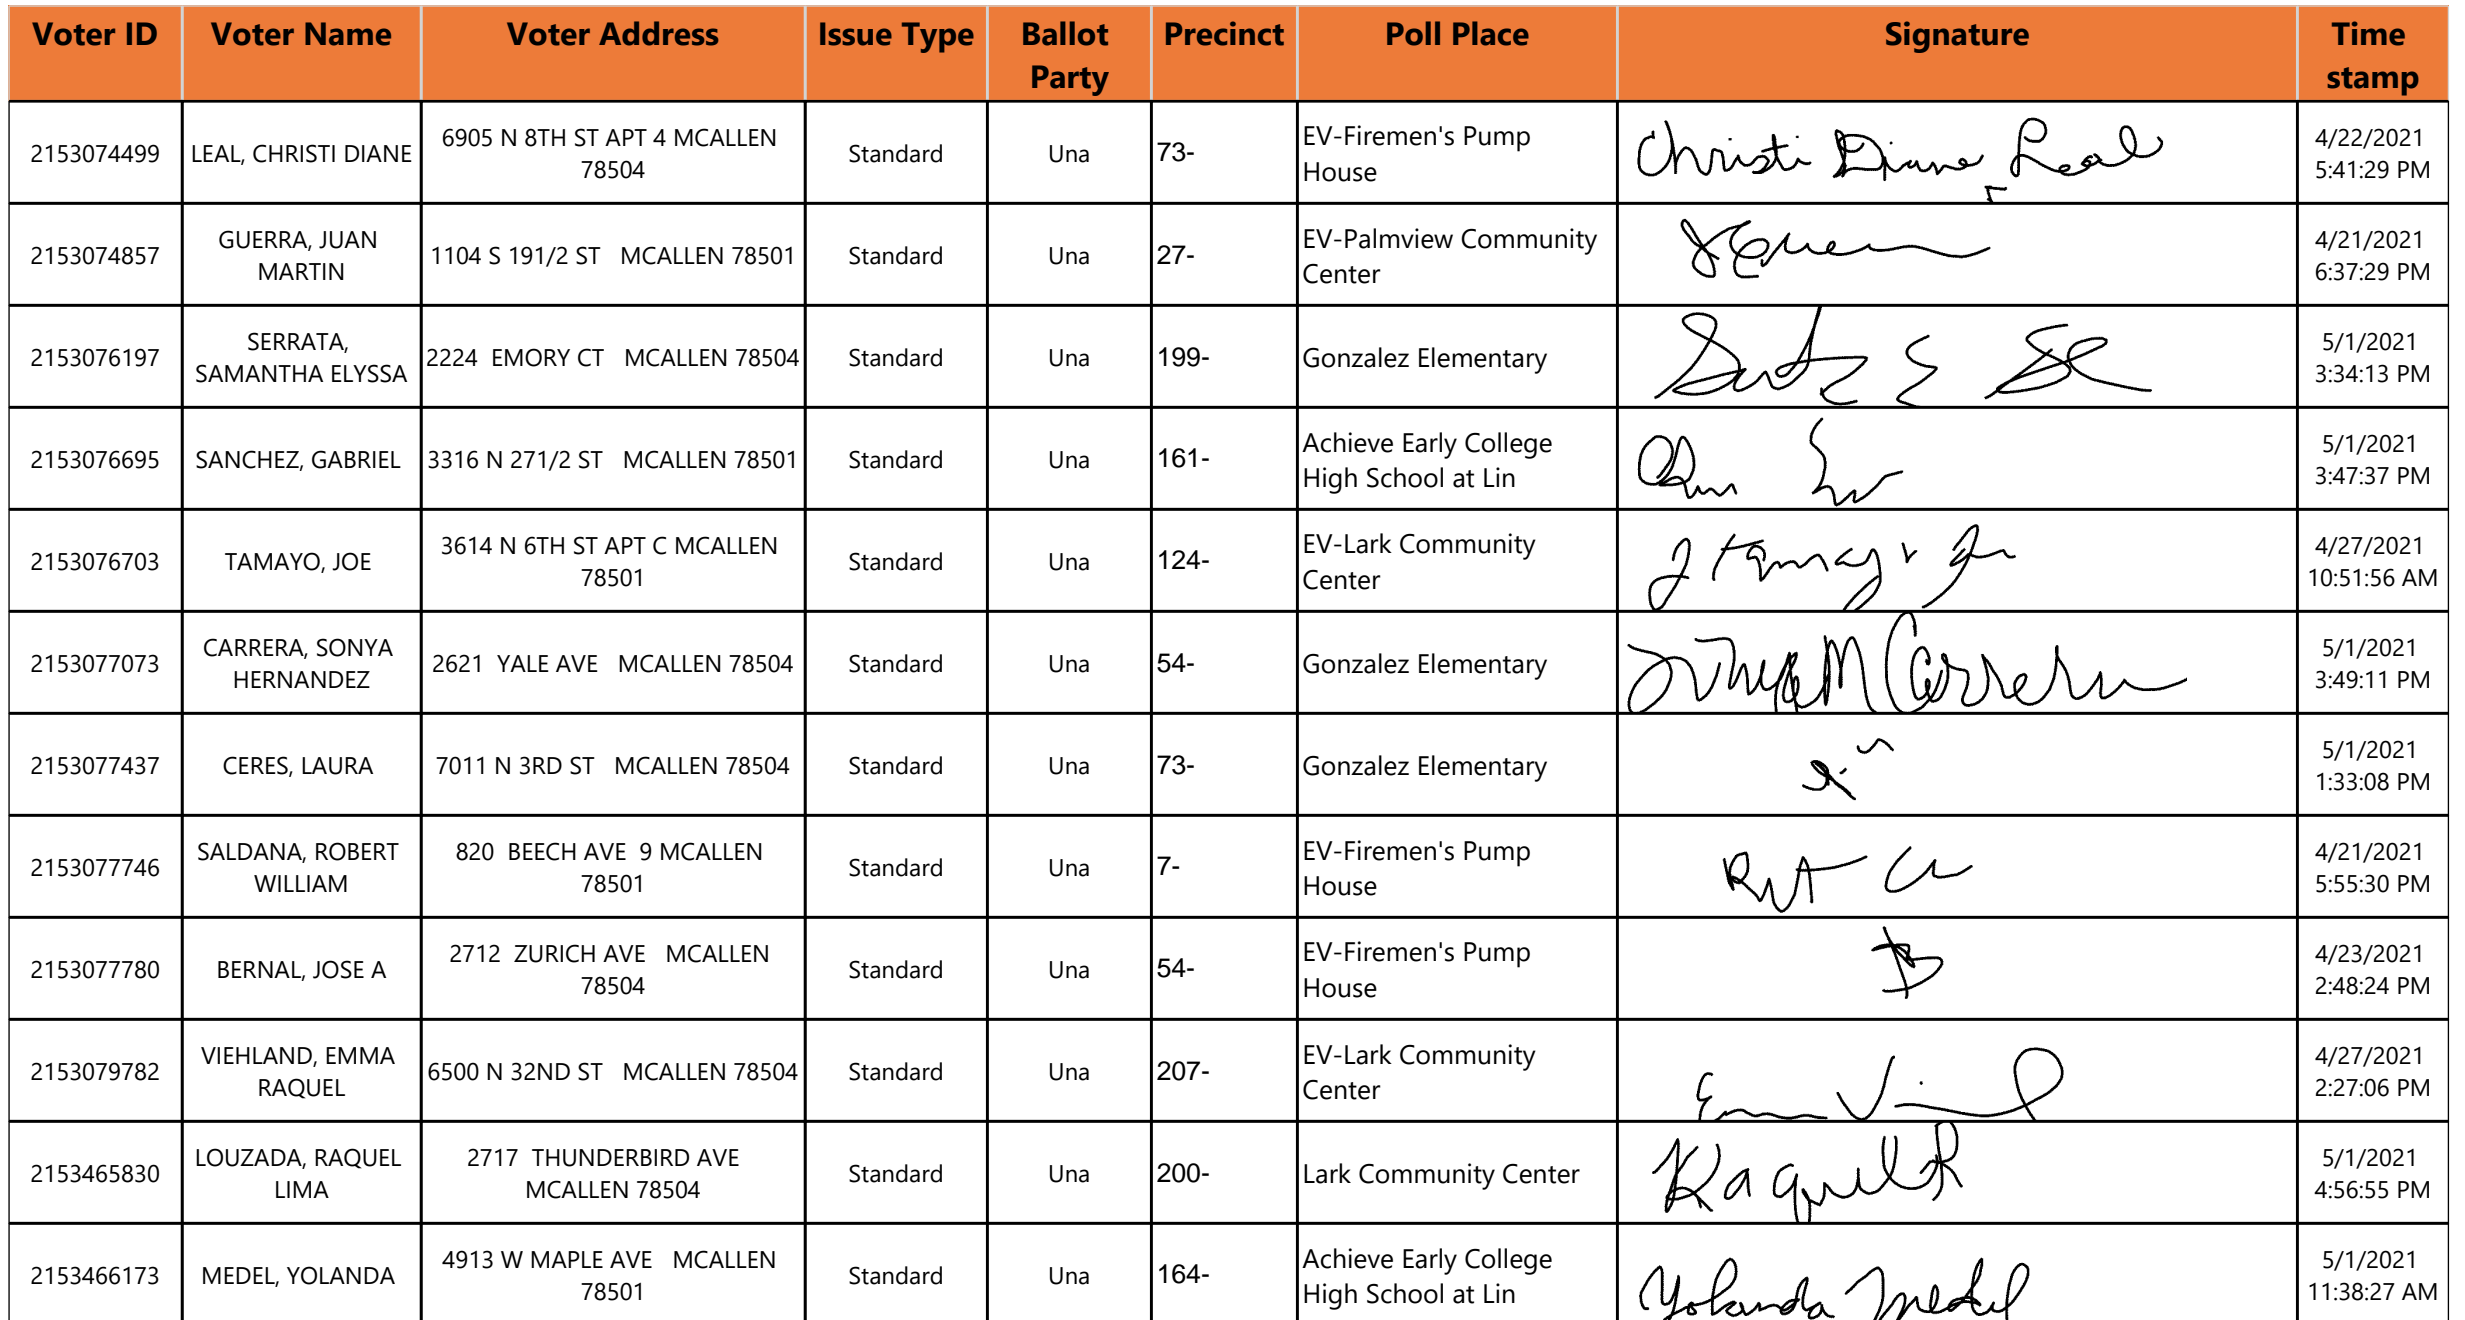 Voter ID Voter Name Voter Address Issue Type Ballot Party Precinct Poll Place Signature Time stamp
2153074499 LEAL, CHRISTI DIANE 6905 N 8TH ST APT 4 MCALLEN 78504 Standard Una 73- EV-Firemen's Pump House Christi Diane Leal 4/22/2021 5:41:29 PM
2153074857 GUERRA, JUAN MARTIN 1104 S 191/2 ST MCALLEN 78501 Standard Una 27- EV-Palmview Community Center 4/21/2021 6:37:29 PM
2153076197 SERRATA, SAMANTHA ELYSSA 2224 EMORY CT MCALLEN 78504 Standard Una 199- Gonzalez Elementary 5/1/2021 3:34:13 PM
2153076695 SANCHEZ, GABRIEL 3316 N 271/2 ST MCALLEN 78501 Standard Una 161- Achieve Early College High School at Lin 5/1/2021 3:47:37 PM
2153076703 TAMAYO, JOE 3614 N 6TH ST APT C MCALLEN 78501 Standard Una 124- EV-Lark Community Center 4/27/2021 10:51:56 AM
2153077073 CARRERA, SONYA HERNANDEZ 2621 YALE AVE MCALLEN 78504 Standard Una 54- Gonzalez Elementary Sonya M Carrera 5/1/2021 3:49:11 PM
2153077437 CERES, LAURA 7011 N 3RD ST MCALLEN 78504 Standard Una 73- Gonzalez Elementary 5/1/2021 1:33:08 PM
2153077746 SALDANA, ROBERT WILLIAM 820 BEECH AVE 9 MCALLEN 78501 Standard Una 7- EV-Firemen's Pump House 4/21/2021 5:55:30 PM
2153077780 BERNAL, JOSE A 2712 ZURICH AVE MCALLEN 78504 Standard Una 54- EV-Firemen's Pump House 4/23/2021 2:48:24 PM
2153079782 VIEHLAND, EMMA RAQUEL 6500 N 32ND ST MCALLEN 78504 Standard Una 207- EV-Lark Community Center 4/27/2021 2:27:06 PM
2153465830 LOUZADA, RAQUEL LIMA 2717 THUNDERBIRD AVE MCALLEN 78504 Standard Una 200- Lark Community Center Raquel 5/1/2021 4:56:55 PM
2153466173 MEDEL, YOLANDA 4913 W MAPLE AVE MCALLEN 78501 Standard Una 164- Achieve Early College High School at Lin Yolanda Medel 5/1/2021 11:38:27 AM